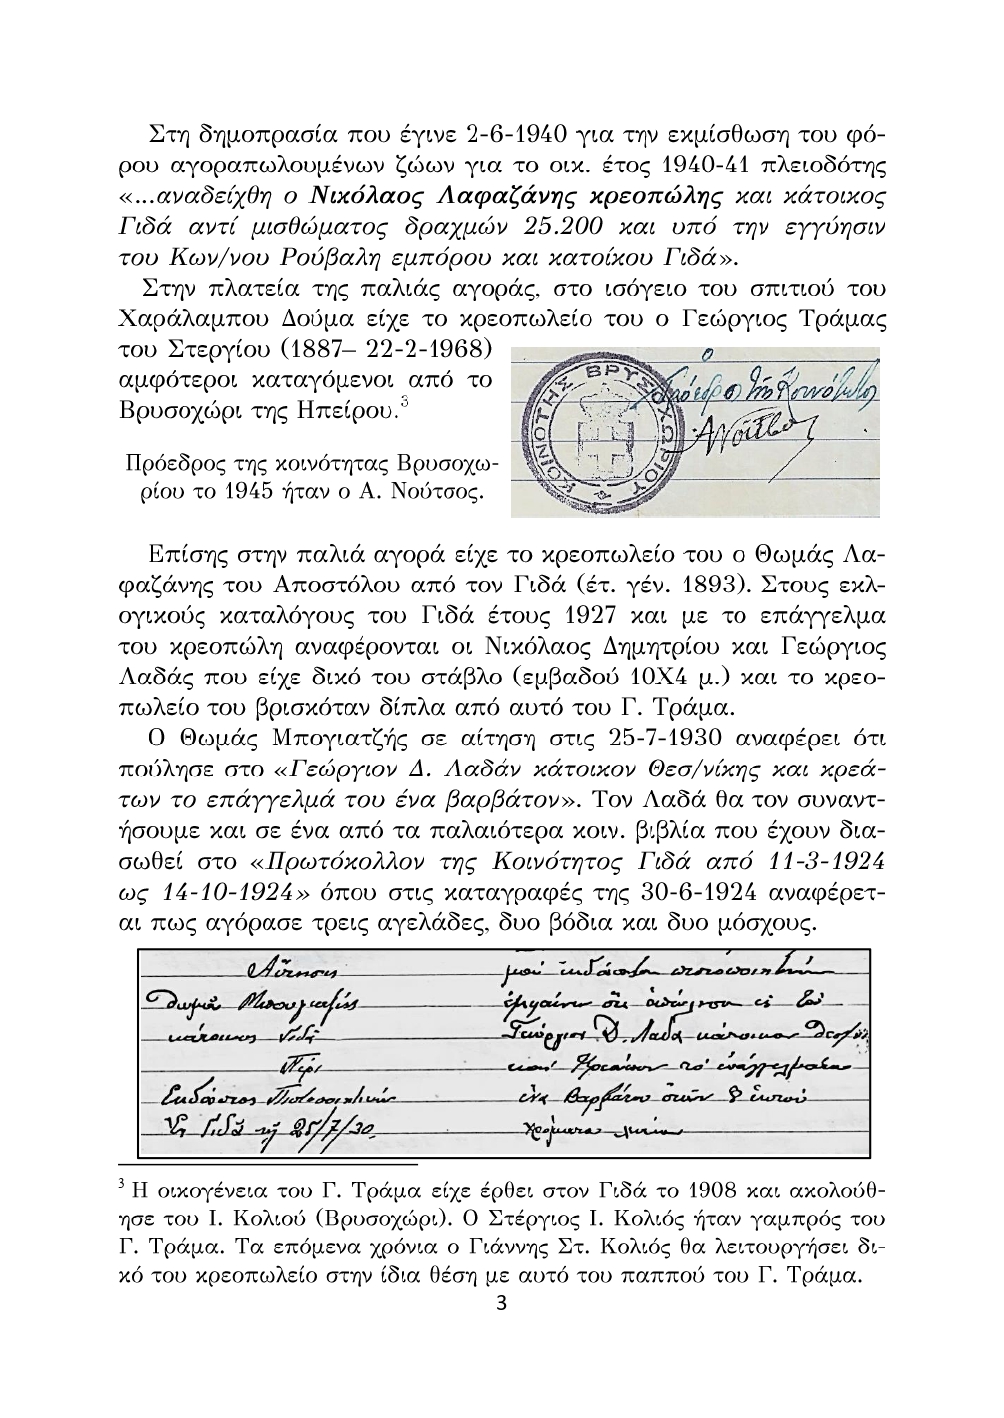 Στη δημοπρασία που έγινε 2-6-1940 για την εκμίσθωση του φό-
ρου αγοραπωλουμένων ζώων για το οικ. έτος 1940-41 πλειοδότης
«...αναδείχθη ο Νικόλαος Λαφαζάνης κρεοπώλης και κάτοικος
Γιδά αντί μισθώματος δραχμών 25.200 και υπό την εγγύησιν
του Κων/νου Ρούβαλη εμπόρου και κατοίκου Γιδά».
Στην πλατεία της παλιάς αγοράς, στο ισόγειο του σπιτιού του
Χαράλαμπου Δούμα είχε το κρεοπωλείο του ο Γεώργιος Τράμας
του Στεργίου (1887– 22-2-1968)
αμφότεροι καταγόμενοι από το
Βρυσοχώρι της Ηπείρου.3
ΚΟΙΝΟΤΗΣ ΒΡΥΣΟΧΩΡΙΟΥ
ο
Πρόεδρος της Κοινότητος
Α Νούτσος
Πρόεδρος της κοινότητας Βρυσοχω-
ρίου το 1945 ήταν ο Α. Νούτσος.
Επίσης στην παλιά αγορά είχε το κρεοπωλείο του ο Θωμάς Λα-
φαζάνης του Αποστόλου από τον Γιδά (έτ. γέν. 1893). Στους εκλ-
ογικούς καταλόγους του Γιδά έτους 1927 και με το επάγγελμα
του κρεοπώλη αναφέρονται οι Νικόλαος Δημητρίου και Γεώργιος
Λαδάς που είχε δικό του στάβλο (εμβαδού 10Χ4 μ.) και το κρεο-
πωλείο του βρισκόταν δίπλα από αυτό του Γ. Τράμα.
Ο Θωμάς Μπογιατζής σε αίτηση στις 25-7-1930 αναφέρει ότι
πούλησε στο «Γεώργιον Δ. Λαδάν κάτοικον Θεσ/νίκης και κρεά-
των το επάγγελμά του ένα βαρβάτον». Τον Λαδά θα τον συναντ-
ήσουμε και σε ένα από τα παλαιότερα κοιν. βιβλία που έχουν δια-
σωθεί στο «Πρωτόκολλον της Κοινότητος Γιδά από 11-3-1924
ως 14-10-1924» όπου στις καταγραφές της 30-6-1924 αναφέρετ-
αι πως αγόρασε τρεις αγελάδες, δυο βόδια και δυο μόσχους.
Αίτησις
Θωμά Μπογιατζής
κάτοικος Γιδά
Περί
Εκδόσεως Πιστοποιητικού
Εν Γιδά τη 25/7/30.
μου
ότι
Γεώργιον Δ. Λαδά κάτοικον Θεσ/νί
και Κρεάτων το επάγγελμα
ένα Βαρβάτον
3 Η οικογένεια του Γ. Τράμα είχε έρθει στον Γιδά το 1908 και ακολούθ-
ησε του Ι. Κολιού (Βρυσοχώρι). Ο Στέργιος Ι. Κολιός ήταν γαμπρός του
Γ. Τράμα. Τα επόμενα χρόνια ο Γιάννης Στ. Κολιός θα λειτουργήσει δι-
κό του κρεοπωλείο στην ίδια θέση με αυτό του παππού του Γ. Τράμα.
3